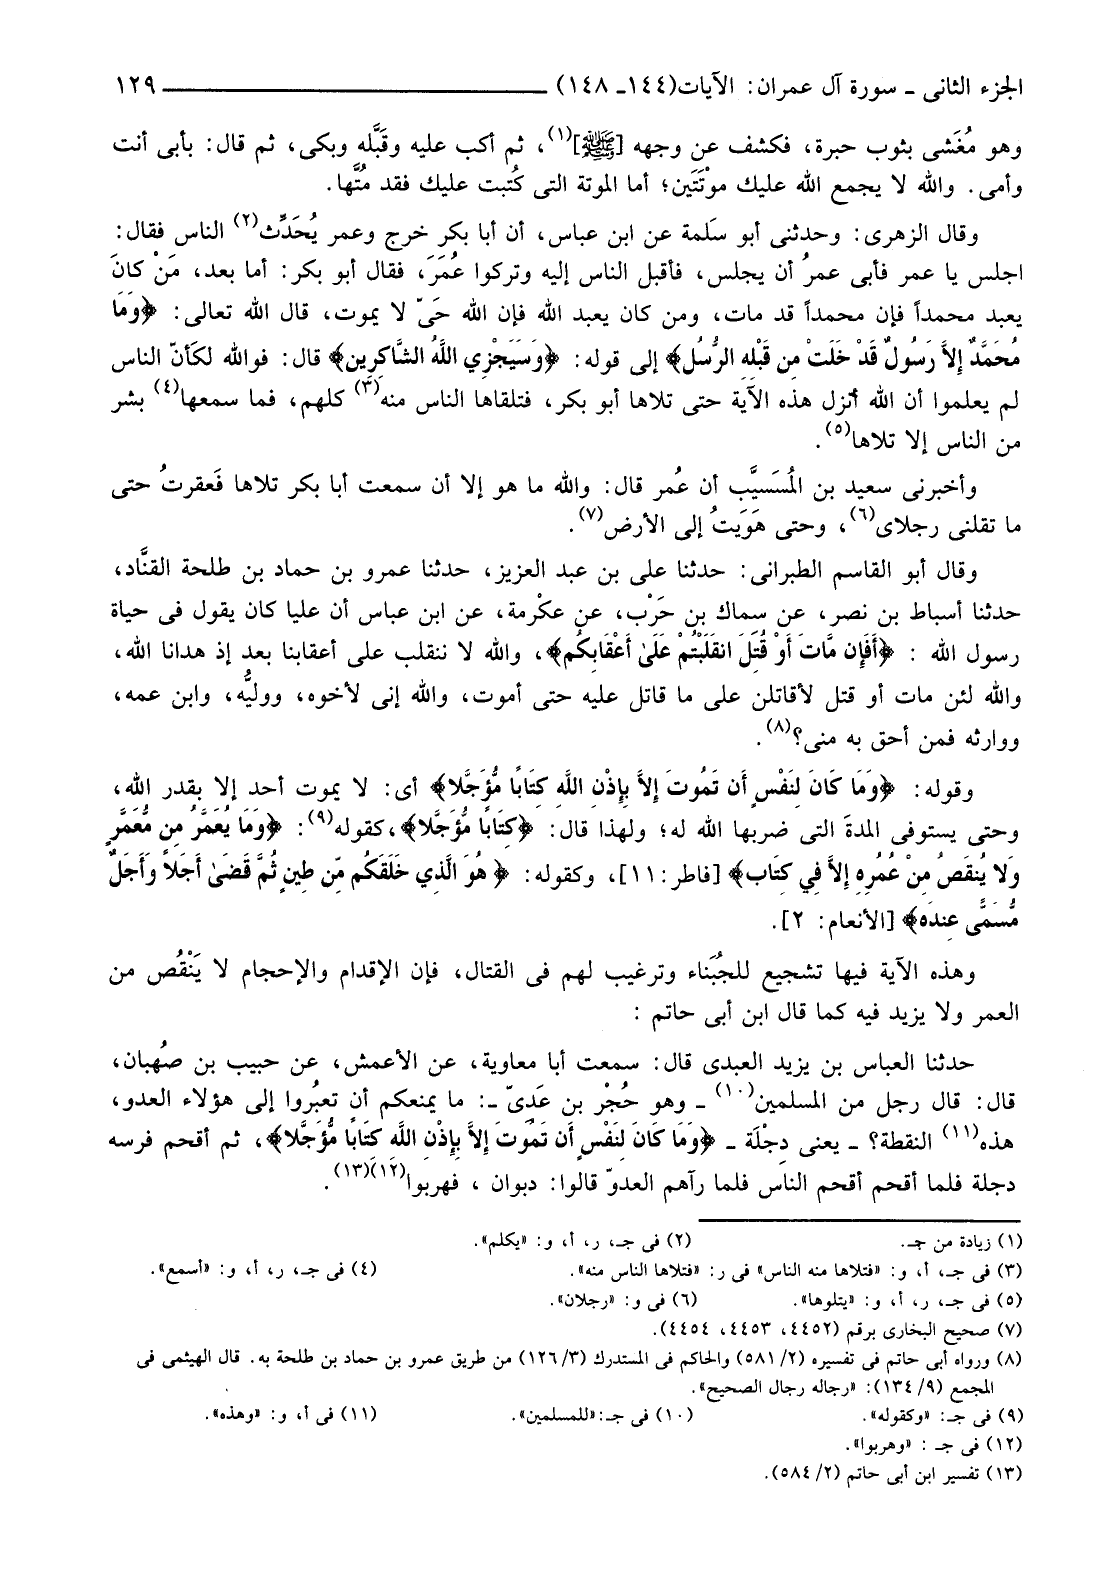 الجزء الثانى - سورة آل عمران: الآيات(١٤٤ـ ١٤٨) ١٢٩
وهو مُغَشى بثوب حبرة، فكشف عن وجهه [ﷺ](١)، ثم أكب عليه وقَبَّله وبكى، ثم قال: بأبى أنت
وأمى. والله لا يجمع الله عليك موْتَتَين؛ أما الموتة التى كُتبت عليك فقد مُتَّها.
وقال الزهرى: وحدثنى أبو سَلَمة عن ابن عباس، أن أبا بكر خرج وعمر يُحَدِّث(٢) الناس فقال:
اجلس يا عمر فأبى عمرُ أن يجلس، فأقبل الناس إليه وتركوا عُمَرَ، فقال أبو بكر: أما بعد، مَنْ كانَ
يعبد محمداً فإن محمداً قد مات، ومن كان يعبد الله فإن الله حَىّ لا يموت، قال الله تعالى: ﴿وَمَا
مُحَمَّدٌ إِلاَّ رَسُولٌ قَدْ خَلَتْ مِن قَبْلِهِ الرُّسُل﴾ إلى قوله: ﴿وَسَيَجْزِي اللَّهُ الشَّاكِرِين﴾ قال: فوالله لكَأنّ الناس
لم يعلموا أن الله أنزل هذه الآية حتى تلاها أبو بكر، فتلقاها الناس منه(٣) كلهم، فما سمعها(٤) بشر
من الناس إلا تلاها(٥).
وأخبرنى سعيد بن المُسَسيَّب أن عُمر قال: والله ما هو إلا أن سمعت أبا بكر تلاها فَعقرتُ حتى
ما تقلنى رجلاى(٦)، وحتى هَوَيتُ إلى الأرض(٧).
وقال أبو القاسم الطبرانى: حدثنا على بن عبد العزيز، حدثنا عمرو بن حماد بن طلحة القنَّاد،
حدثنا أسباط بن نصر، عن سماك بن حَرْب، عن عكْرمة، عن ابن عباس أن عليا كان يقول فى حياة
رسول الله : ﴿أَفَإِن مَّاتَ أَوْ قُتِلَ انقَلَبْتُمْ عَلَىٰ أَعْقَابِكُم﴾، والله لا ننقلب على أعقابنا بعد إذ هدانا الله،
والله لئن مات أو قتل لأقاتلن على ما قاتل عليه حتى أموت، والله إنى لأخوه، ووليُّه، وابن عمه،
ووارثه فمن أحق به منى؟(٨).
وقوله: ﴿وَمَا كَانَ لِنَفْسٍ أَن تَمُوتَ إِلاَّ بِإِذْنِ اللَّهِ كِتَابًا مُّؤَجَّلا﴾ أى: لا يموت أحد إلا بقدر الله،
وحتى يستوفى المدةَ التى ضربها الله له؛ ولهذا قال: ﴿كِتَابًا مُّؤَجَّلا﴾،كقوله(٩): ﴿وَمَا يُعَمَّرُ مِن مُّعَمَّرٍ
وَلا يُنقَصُ مِنْ عُمُرِهِ إِلاَّ فِي كِتَاب﴾ [فاطر:١١]، وكقوله: ﴿هُوَ الَّذِي خَلَقَكُم مِّن طِينٍ ثُمَّ قَضَىٰ أَجَلاً وَأَجَلٌ
مُّسَمًّى عِندَه﴾ [الأنعام: ٢].
وهذه الآية فيها تشجيع للجُبَناء وترغيب لهم فى القتال، فإن الإقدام والإحجام لا يَنْقُص من
العمر ولا يزيد فيه كما قال ابن أبى حاتم :
حدثنا العباس بن يزيد العبدى قال: سمعت أبا معاوية، عن الأعمش، عن حبيب بن صُهبان،
قال: قال رجل من المسلمين(١٠) ـ وهو حُجْر بن عَدىّ ـ: ما يمنعكم أن تعبُروا إلى هؤلاء العدو،
هذه(١١) النقطة؟ ـ يعنى دِجْلَة ـ ﴿وَمَا كَانَ لِنَفْسٍ أَن تَمُوتَ إِلاَّ بِإِذْنِ اللَّهِ كِتَابًا مُّؤَجَّلا﴾، ثم أقحم فرسه
دجلة فلما أقحم أقحم الناس فلما رآهم العدوّ قالوا: ديوان ، فهربوا(١٢)(١٣).
(١) زيادة من جـ. (٢) فى جـ، ر، أ، و: «يكلم».
(٣) فى جـ، أ، و: «فتلاها منه الناس» فى ر: «فتلاها الناس منه». (٤) فى جـ، ر، أ، و: «أسمع».
(٥) فى جـ، ر، أ، و: «يتلوها». (٦) فى و: «رجلان».
(٧) صحيح البخارى برقم (٤٤٥٢، ٤٤٥٣، ٤٤٥٤).
(٨) ورواه أبى حاتم فى تفسيره (٢/ ٥٨١) والحاكم فى المستدرك (٣/ ١٢٦) من طريق عمرو بن حماد بن طلحة به. قال الهيثمى فى
المجمع (٩/ ١٣٤): «رجاله رجال الصحيح».
(٩) فى جـ: «وكقوله». (١٠) فى جـ:«للمسلمين». (١١) فى أ، و: «وهذه».
(١٢) فى جـ : «وهربوا».
(١٣) تفسير ابن أبى حاتم (٢/ ٥٨٤).